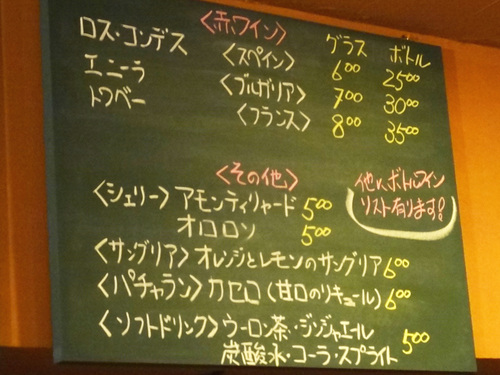 〈赤ワイン〉 グラス ボトル
ロス・コンデス 〈スペイン〉 600 2500
エニーラ 〈ブルガリア〉 700 3000
トワベー 〈フランス〉 800 3500
〈その他〉
他にボトルワイン
リスト有ります!
〈シェリー〉 アモンティリャード 500
オロロソ 500
〈サングリア〉 オレンジとレモンのサングリア 600
〈パチャラン〉 カセロ (甘口のリキュール) 600
〈ソフトドリンク〉 ウーロン茶・ジンジャエール
炭酸水・コーラ・スプライト 500